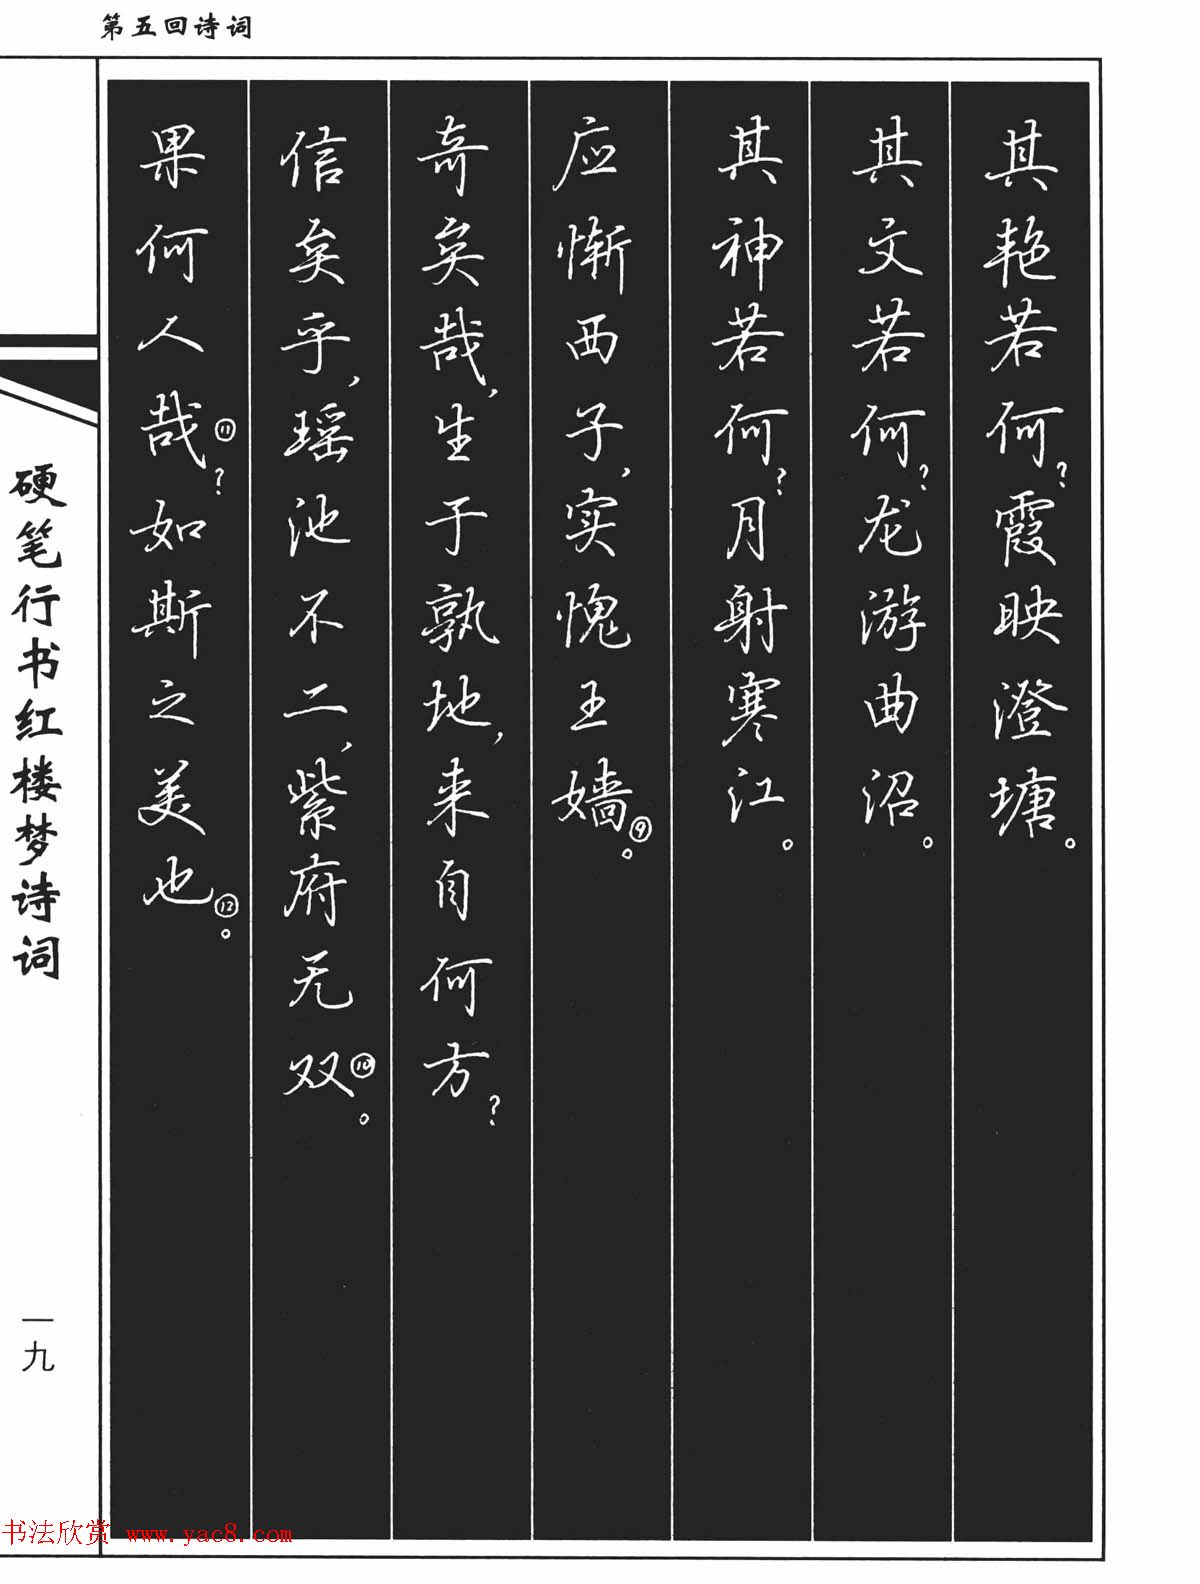 第五回诗词
其艳若何？霞映澄塘。
其文若何？龙游曲沼。
其神若何？月射寒江。
应惭西子，实愧王嫱⑨。
奇矣哉，生于孰地，来自何方？
信矣乎，瑶池不二，紫府无双⑩。
果何人哉⑪？如斯之美也⑫。
硬笔行书红楼梦诗词
一九
书法欣赏 www.yac8.com